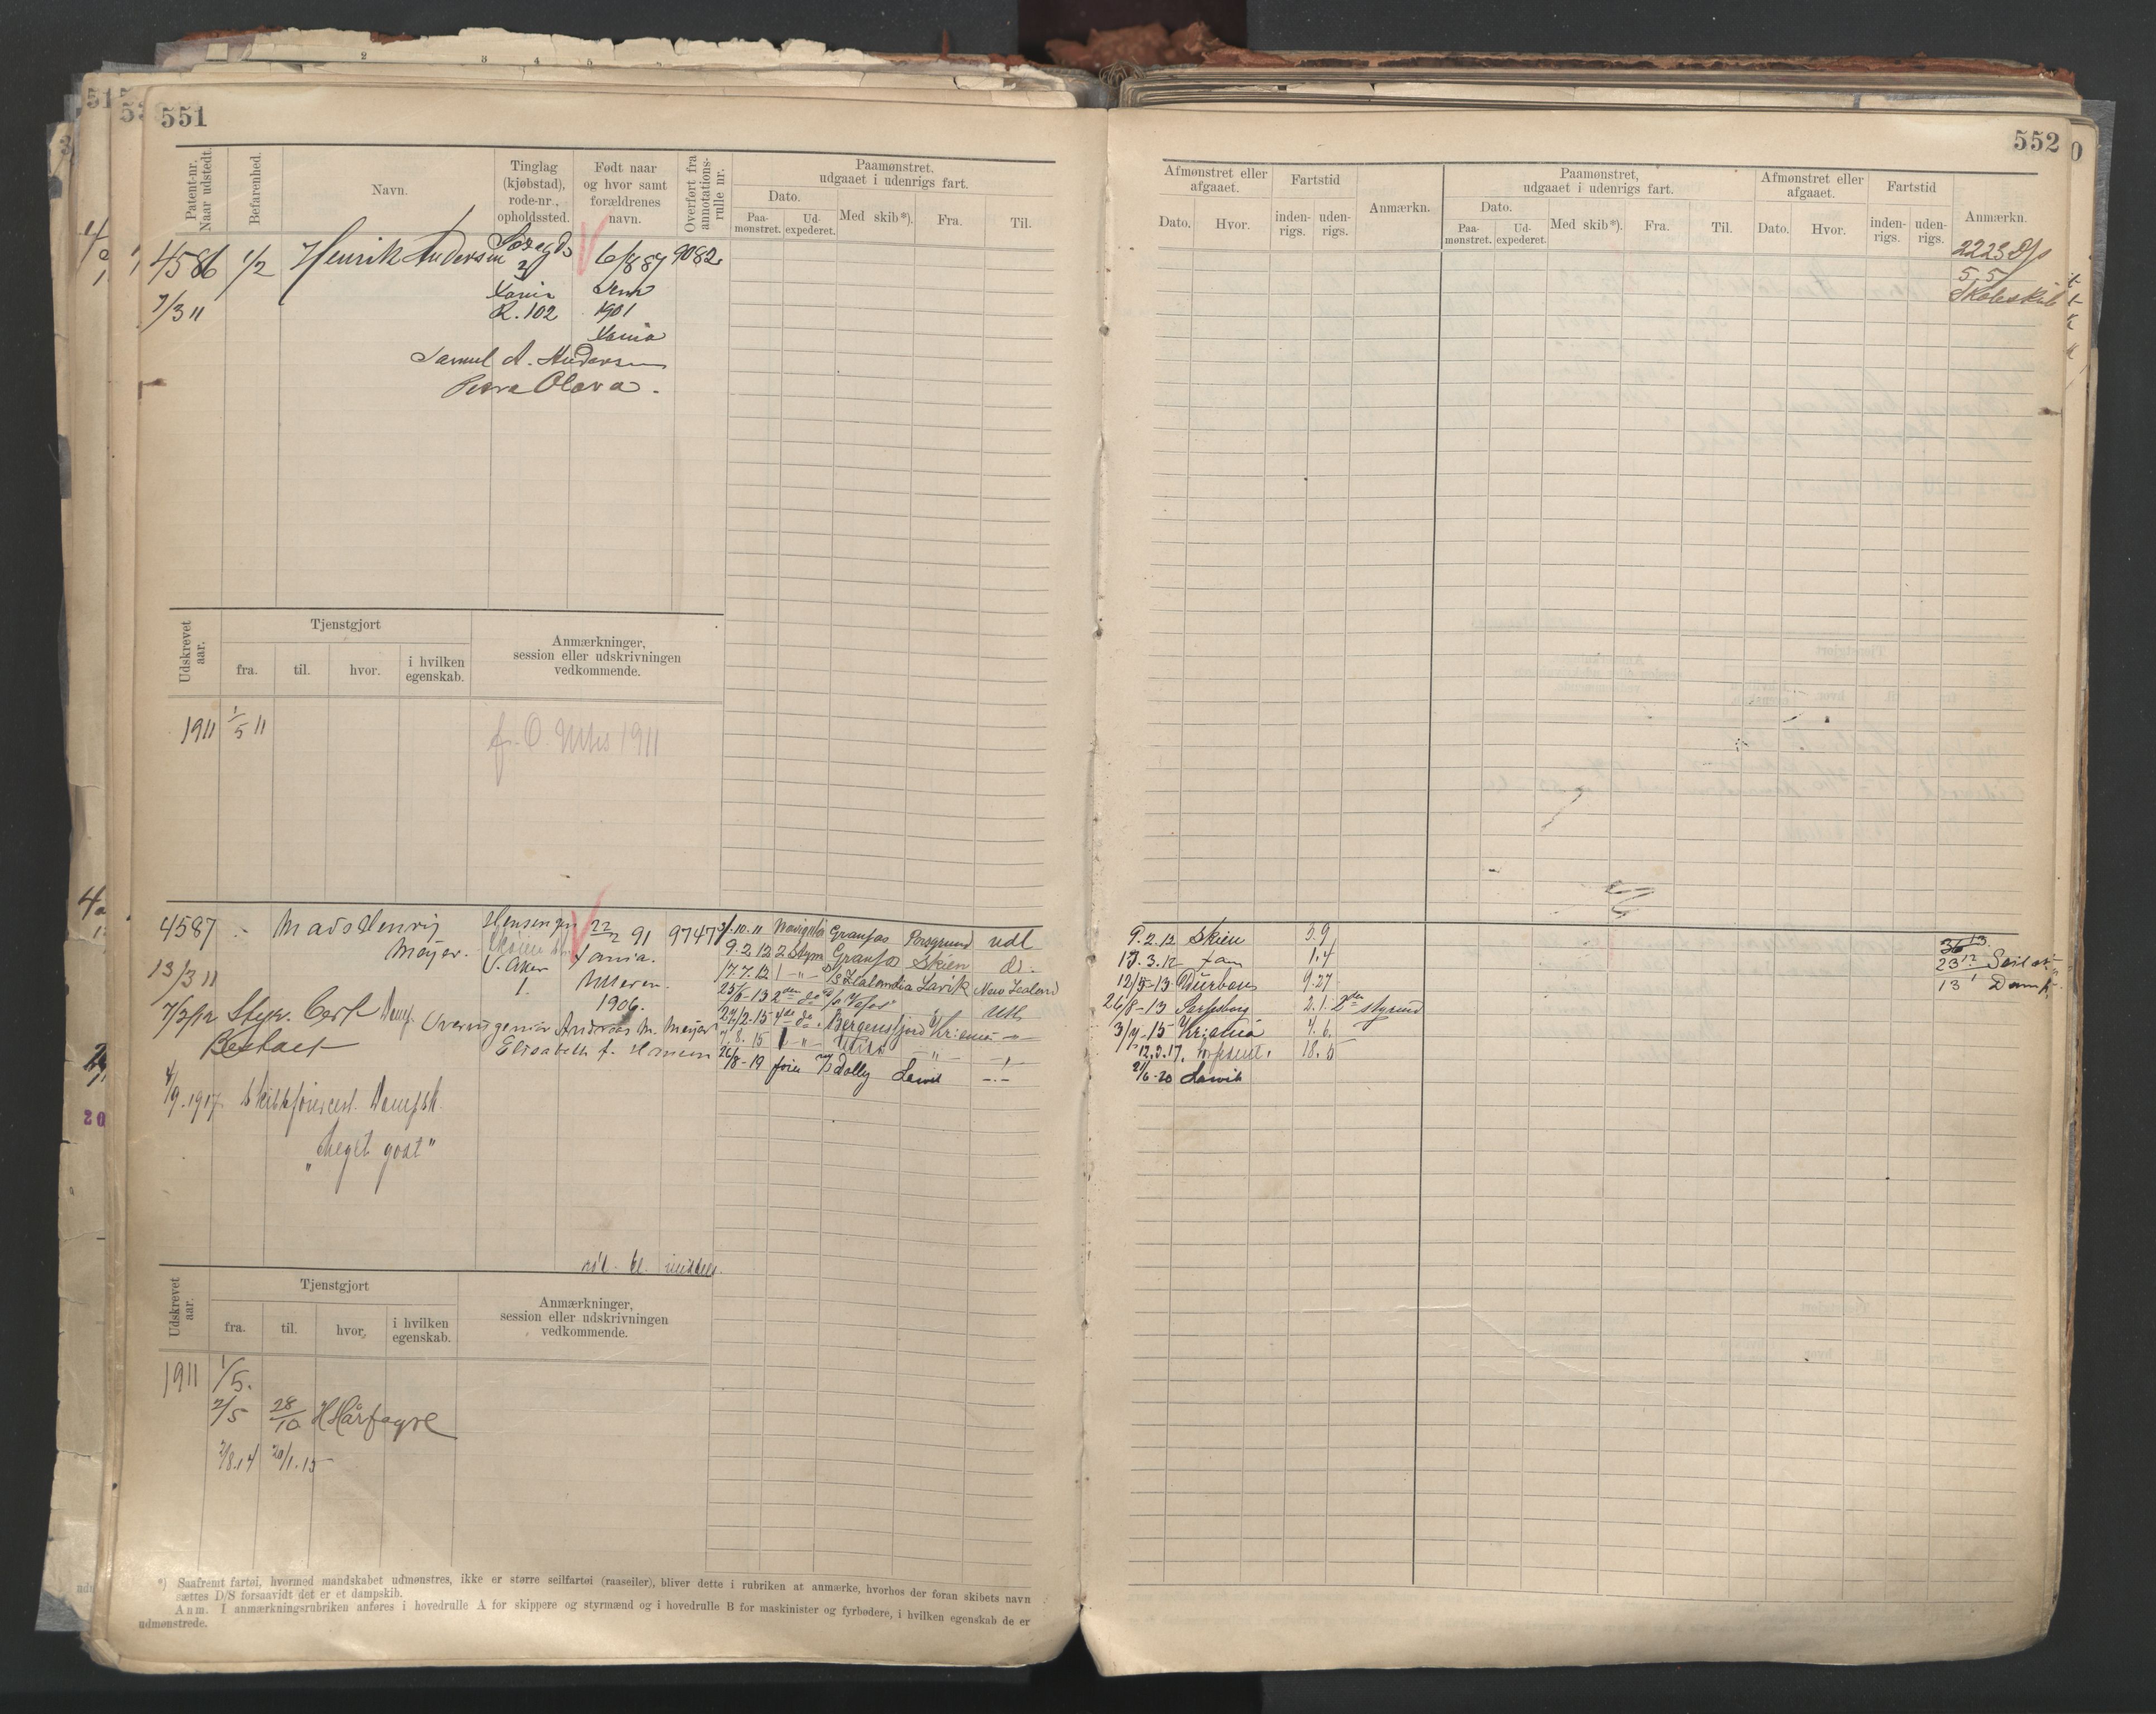 551
Patent-nr. Naar udstedt.
Befarenhed.
Navn.
Tinglag (kjøbstad), rode-nr., opholdssted.
Født naar og hvor samt forældrenes navn.
Overført fra annotations-rulle nr.
Paamønstret, udgaaet i udenrigs fart.
Dato.
Paa-mønstret.
Ud-expederet.
Med skib*).
Fra.
Til.
4586 1/2 Henrik Andersen 6/8 87 9082
7/3 11
Xania
R. 102 1901
Xania
Samuel A. Andersen
Petra Olava.
Udskrevet aar.
Tjenstgjort
fra.
til.
hvor.
i hvilken egenskab.
Anmærkninger, session eller udskrivningen vedkommende.
1911 1/5 11 1911
4587 Mads Henrij 22/2 91 9747 10. 11 Granfos Porsgrund udl
Meyer. V. Aker Xania. 9. 2 12 2 Styrm Granfos Skien do.
13/3 11 1. Ulleren. 17.7.12 1 -"- D/S Zealandia Larvik New Zealand
1906. 25/6-13 2den do
7/3/12 Styr. Cert Damp. Overingeniør Andreas M. Meyer 24/2-15 4de do. Bergensfjord Kr:ania
Bestaaet Elisabeth f. 7. 8. 15
26/8-19 fører Dolly Larvik -"-
4/9.1917 Skibsførercert. Dampsk.
"Meget godt"
Udskrevet aar.
Tjenstgjort
fra.
til.
hvor.
i hvilken egenskab.
Anmærkninger, session eller udskrivningen vedkommende.
1911 1/5.
2/5 28/10 H Hårfagre
2/8.14 20/1.15
*) Saafremt fartøi, hvormed mandskabet udmønstres, ikke er større seilfartøi (raaseiler), bliver dette i rubriken at anmærke, hvorhos der foran skibets navn
sættes D/S forsaavidt det er et dampskib.
Anm. I anmærkningsrubriken anføres i hovedrulle A for skippere og styrmænd og i hovedrulle B for maskinister og fyrbødere, i hvilken egenskab de er
udmønstrede.
552
Afmønstret eller afgaaet.
Dato.
Hvor.
Fartstid
inden-rigs.
uden-rigs.
Anmærkn.
Paamønstret, udgaaet i udenrigs fart.
Dato.
Paa-mønstret.
Ud-expederet.
Med skib*).
Fra.
Til.
Afmønstret eller afgaaet.
Dato.
Hvor.
Fartstid
inden-rigs.
uden-rigs.
Anmærkn.
5.5
Skoleskib
9. 2. 12 Skien 5.9
3. 12 1.4
12/5-13 Durban 9.27
26/8-13 Sarpsborg 2.1. 2den styrmd
3/7-15 Kr:ania 4.6.
12.2.17. 18.5
21/6-20 Larvik